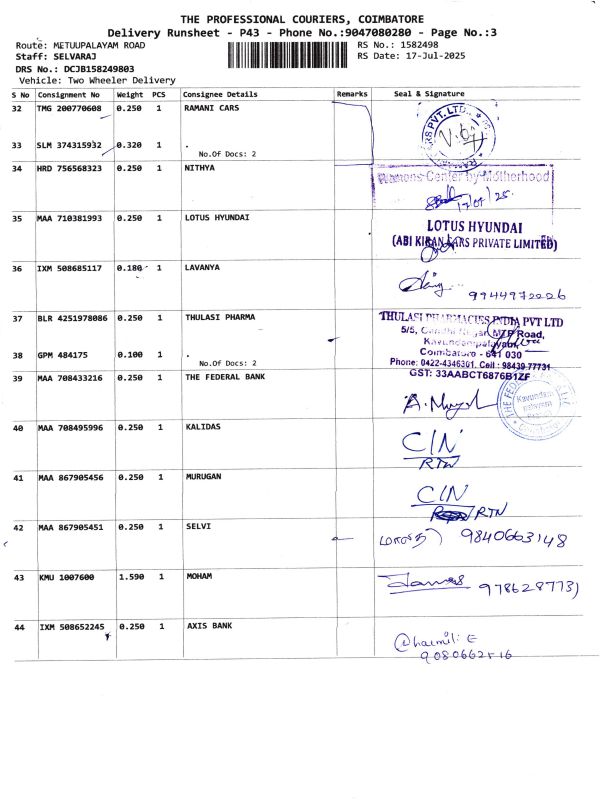 THE PROFESSIONAL COURIERS, COIMBATORE
Delivery Runsheet - P43 - Phone No.:9047080280 - Page No.:3
Route: METUUPALAYAM ROAD
RS No.: 1582498
Staff: SELVARAJ
RS Date: 17-Jul-2025
DRS No.: DCJB158249803
Vehicle: Two Wheeler Delivery
S No Consignment No Weight PCS Consignee Details Remarks Seal & Signature
32 TMG 200770608 0.250 1 RAMANI CARS
33 SLM 374315932 0.320 1 .
No.Of Docs: 2
34 HRD 756568323 0.250 1 NITHYA
Womens Center by Motherhood
35 MAA 710381993 0.250 1 LOTUS HYUNDAI
LOTUS HYUNDAI
(ABI KIRAN CARS PRIVATE LIMITED)
36 IXM 508685117 0.180 1 LAVANYA
9944972226
37 BLR 4251978086 0.250 1 THULASI PHARMA
THULASI PHARMACIES INDIA PVT LTD
5/5, Gandhi Nagar, MTP Road,
Kavundanpalayam,
Coimbatore - 641 030
Phone: 0422-4346301, Cell : 98439 77731
GST: 33AABCT6876B1ZF
38 GPM 484175 0.100 1 .
No.Of Docs: 2
39 MAA 708433216 0.250 1 THE FEDERAL BANK
Kavundam
palayam
40 MAA 708495996 0.250 1 KALIDAS
C/N
RTN
41 MAA 867905456 0.250 1 MURUGAN
C/N
RTN
42 MAA 867905451 0.250 1 SELVI
9840663148
43 KMU 1007600 1.590 1 MOHAM
44 IXM 508652245 0.250 1 AXIS BANK